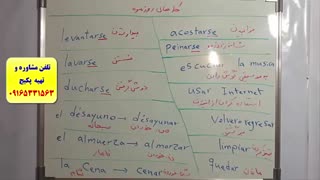 کارهای روزمره
levantarse
بیدار شدن
lavarse
شستن
ducharse
دوش گرفتن
el desayuno → désayunar
صبحانه
el almuerzo → almorzar
ناهار
la Cena → cenar
شام
acostarse
خوابیدن
Peinarse
شانه کردن
escuchar la musica
به موسیقی گوش دادن
usar Internet
استفاده کردن از اینترنت
Volver = regresar
برگشتن
limpiar
quedar
تلفن مشاوره و
تهیه پکیج
۰۹۱۶۵۳۳۱۵۶۳